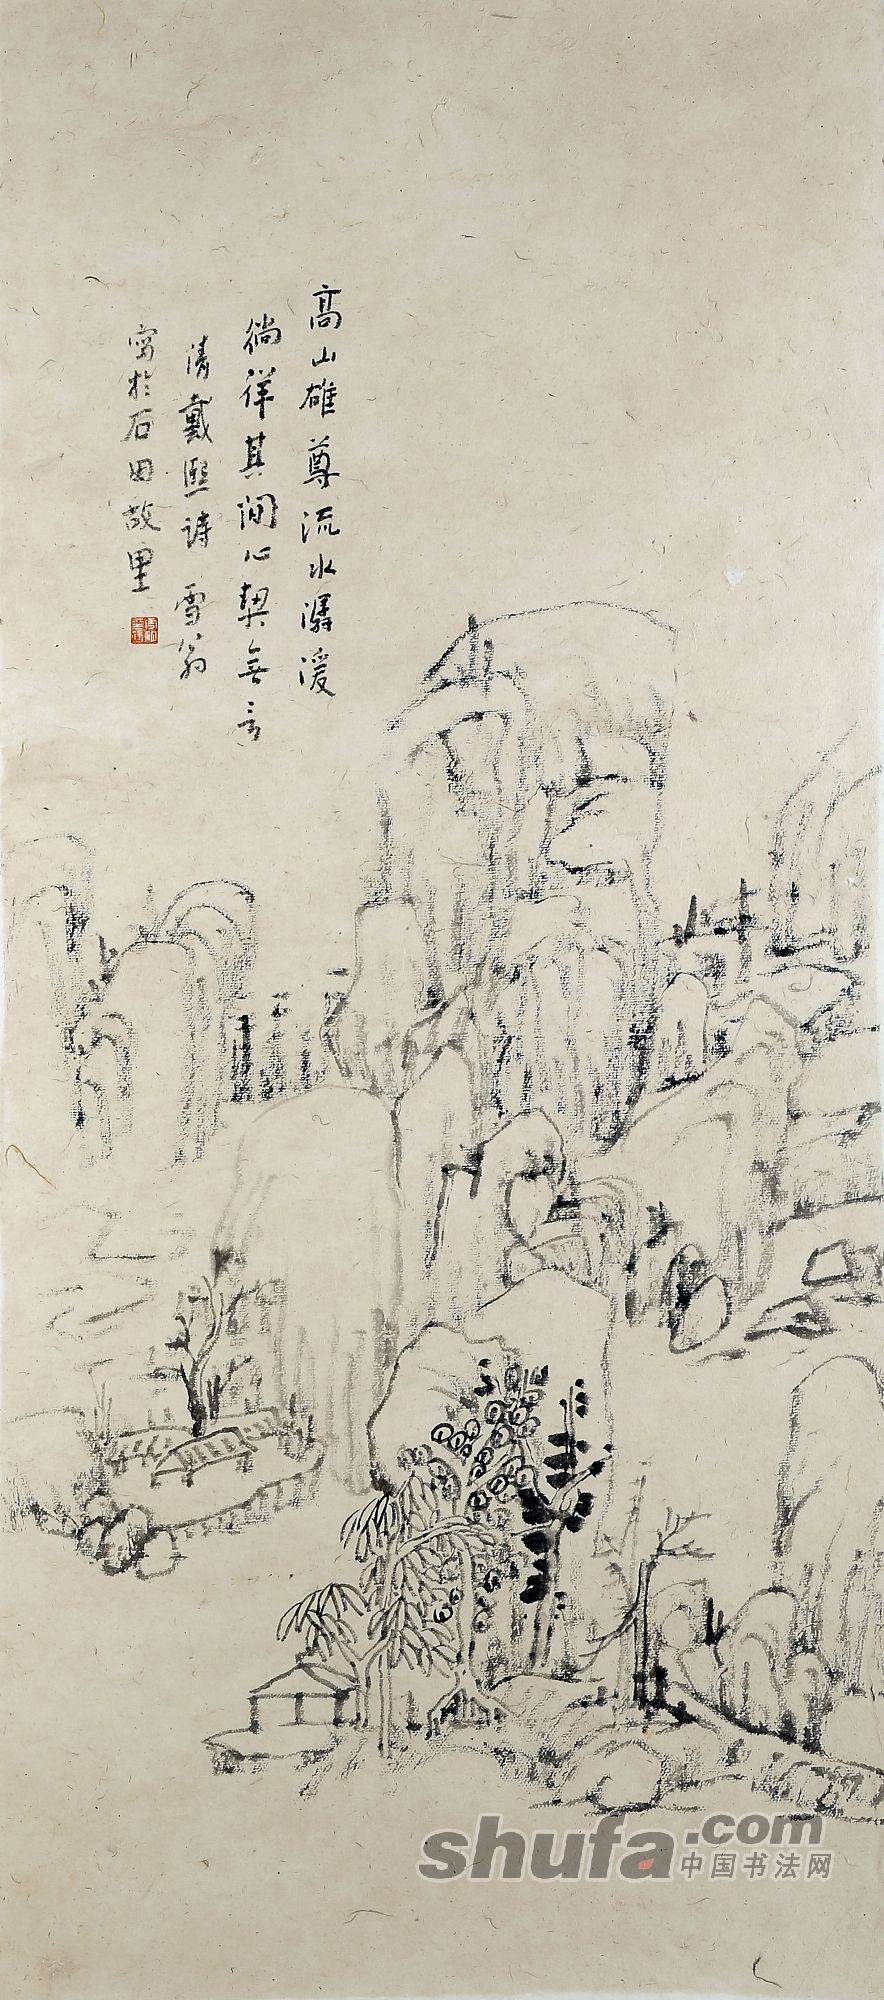 高山雄尊流水潺湲
徜徉其间心契無言
清戴熙诗 雪翁
寫於石田故里
shufa.com
中国书法网